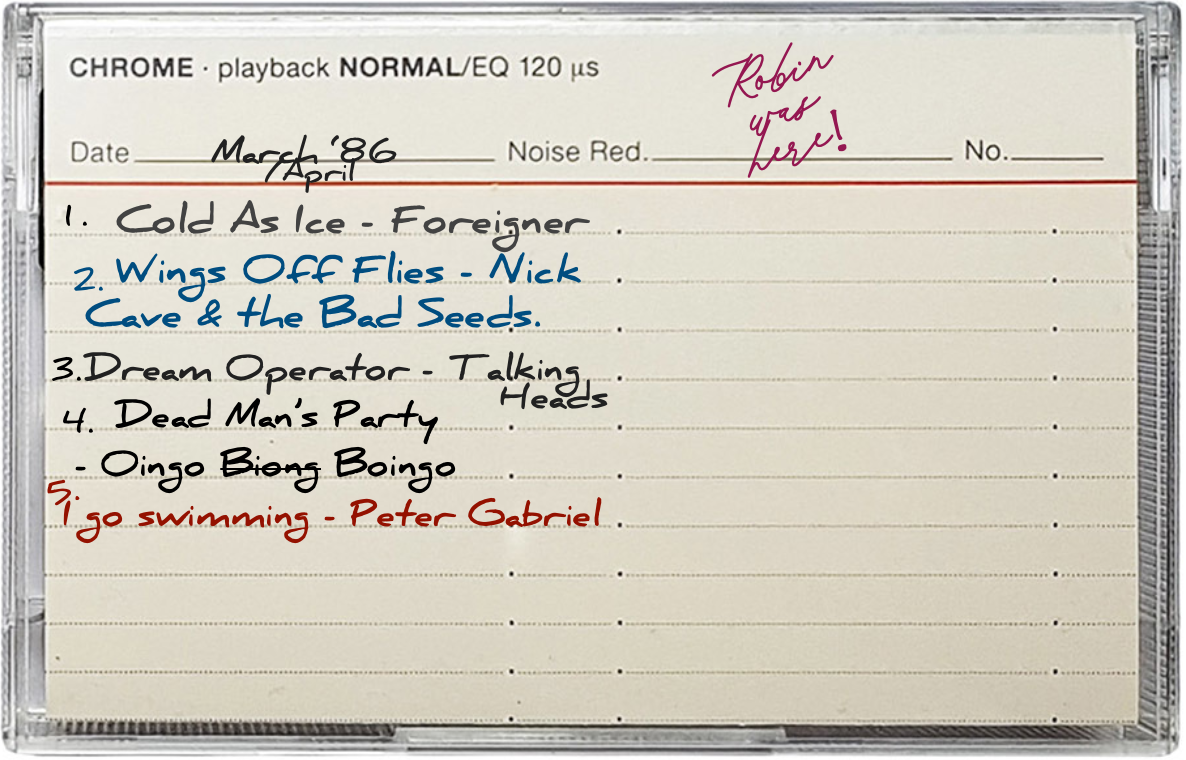 CHROME · playback NORMAL/EQ 120 µs
Robin
was
here!
Date March '86 Noise Red. No.
/April
1. Cold As Ice - Foreigner
2. Wings Off Flies - Nick
Cave & the Bad Seeds.
3. Dream Operator - Talking
Heads
4. Dead Man's Party
- Oingo Biong Boingo
5.
I go swimming - Peter Gabriel